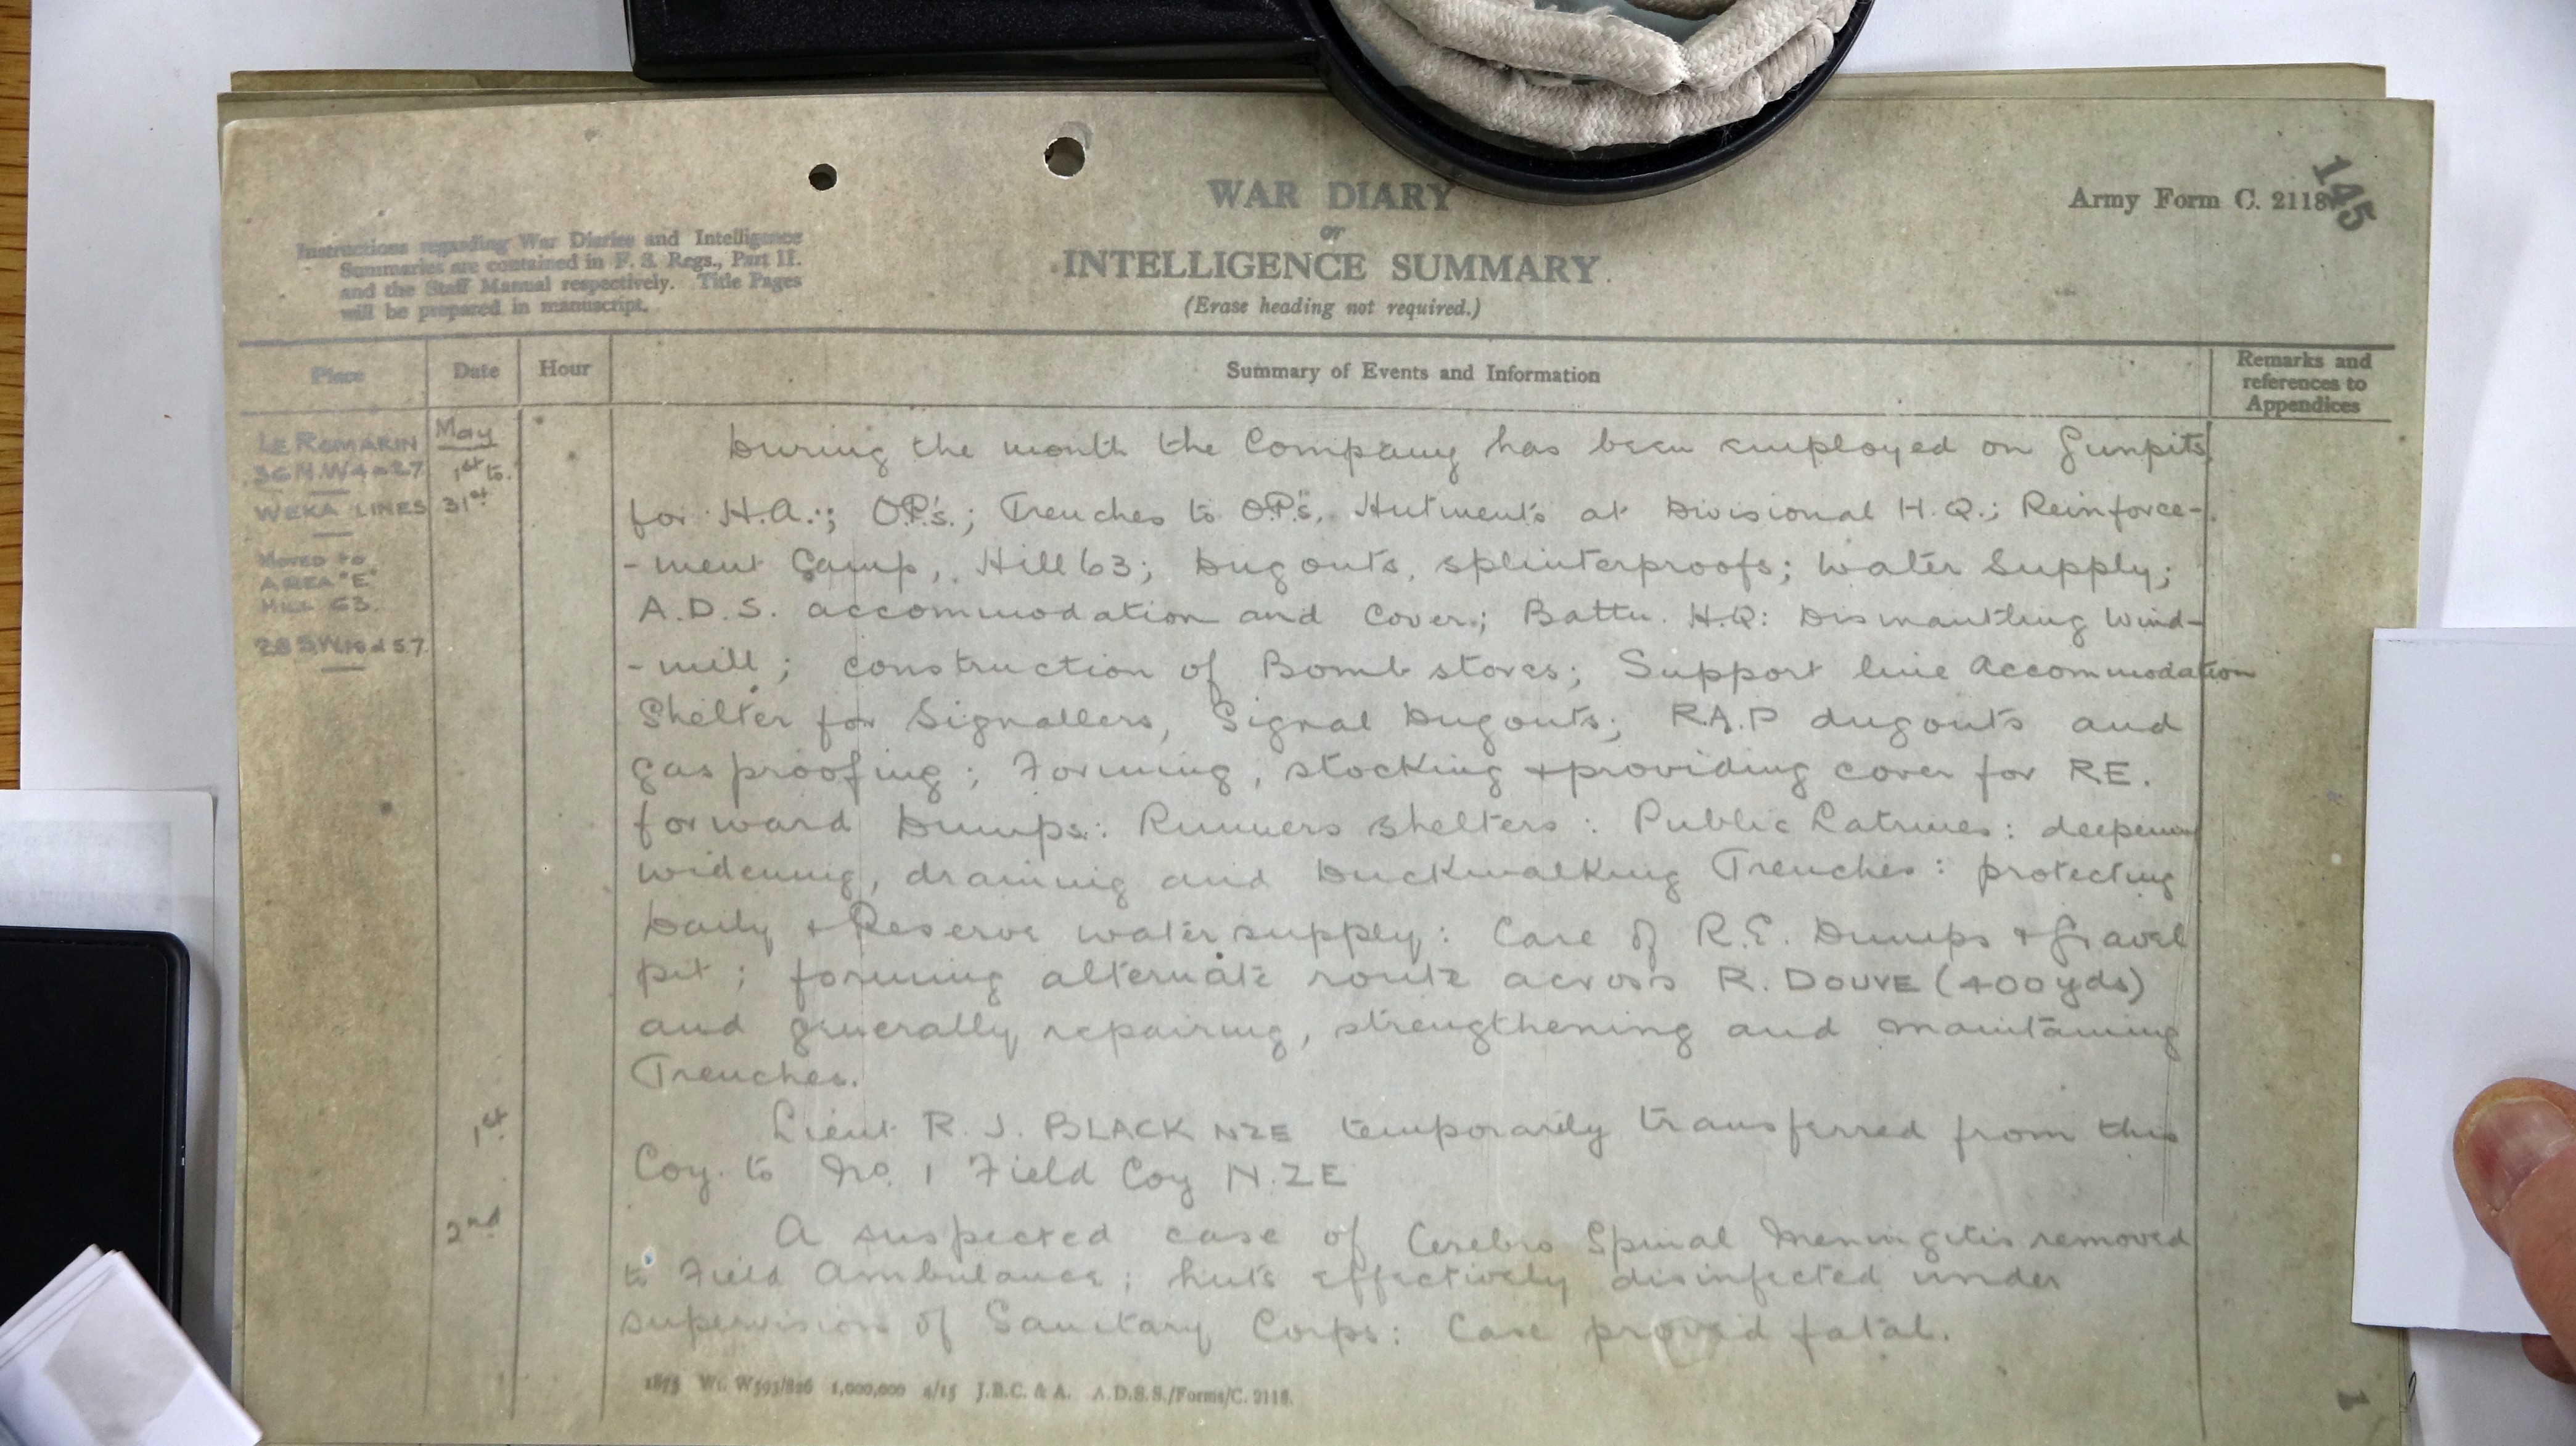 145
WAR DIARY
or
INTELLIGENCE SUMMARY.
(Erase heading not required.)
Army Form C. 2118.
Instructions regarding War Diaries and Intelligence
Summaries are contained in F. S. Regs., Part II.
and the Staff Manual respectively. Title Pages
will be prepared in manuscript.
Place
Date
Hour
Summary of Events and Information
Remarks and
references to
Appendices
LE ROMARIN
36 N.W 4 a 2.7
WEKA LINES
MOVED to
AREA "E"
HILL 63.
28 S.W. 5.7.
May
1st to.
31st
During the month the Company has been employed on Gunpits
for H.A.; O.P's.; Trenches to O.P's. Hutments at Divisional H.Q.; Reinforce-
-ment Camp, Hill 63; Dugouts, splinterproofs; Water Supply;
A.D.S. accommodation and Cover; Battn. H.Q: Dismantling Wind-
-mill; construction of Bomb stores; Support line Accommodation
Shelter for Signallers, Signal Dugouts; R.A.P dugouts and
gasproofing; Forming, stocking + providing cover for R.E.
forward Dumps: Runners Shelters: Public Latrines: deepening
widening, draining and Duckwalking Trenches: protecting
Daily + Reserve water supply: Care of R.E. Dumps + Gravel
pit; forming alternate route across R. DOUVE (400 yds)
and generally repairing, strengthening and maintaining
Trenches.
1st
Lieut R. J. BLACK NZE temporarily transferred from this
Coy. to No. 1 Field Coy N.ZE
2nd
A suspected case of Cerebro Spinal Meningitis removed
to Field Ambulance; huts effectively disinfected under
supervision of Sanitary Corps: Case proved fatal.
1875 Wt. W593/826 1,000,000 4/15 J.B.C. & A. A.D.S.S./Forms/C. 2118.
1